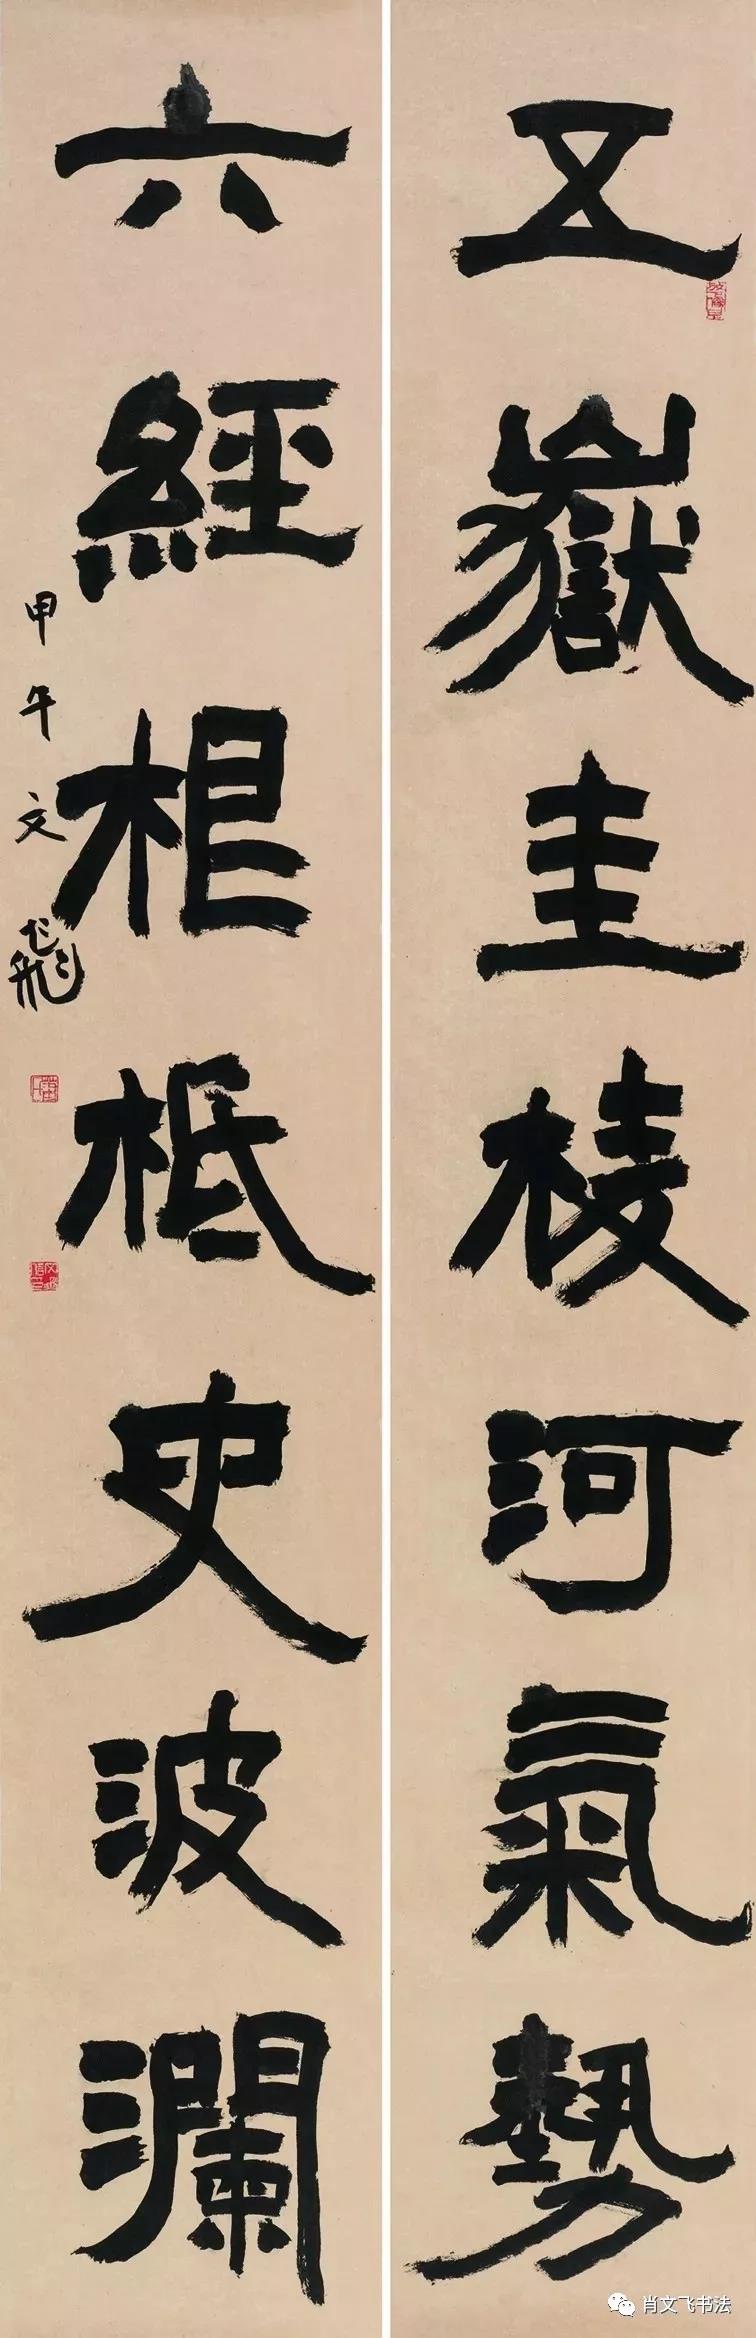 五嶽圭棱河氣勢
六經根柢史波瀾
甲午文飛
肖文飞书法